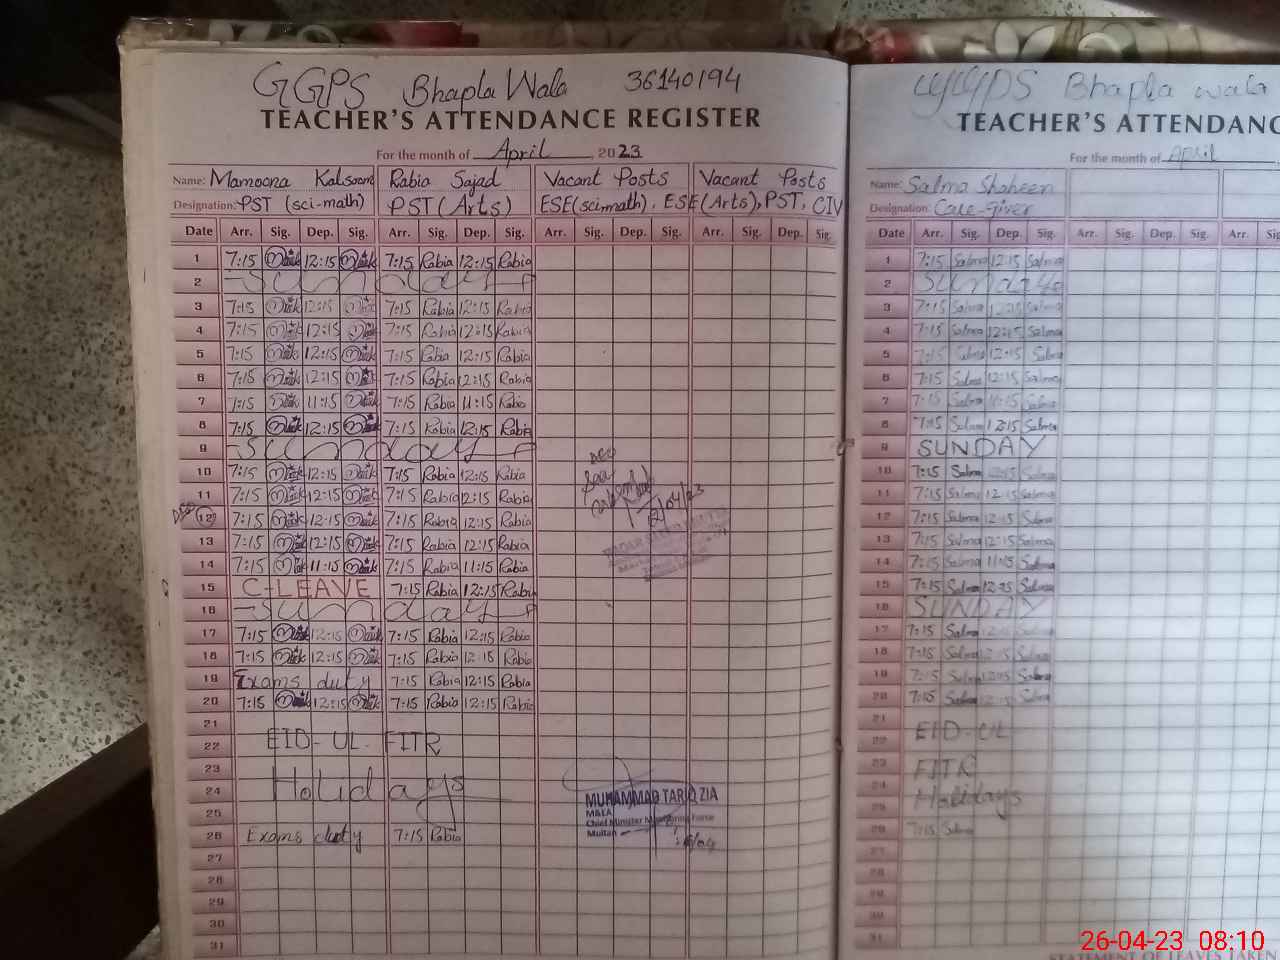 GGPS Bhapla Wala 36140194
TEACHER'S ATTENDANCE REGISTER
For the month of April, 2023
Name: Mamoona Kalsoom Rabia Sajad Vacant Posts Vacant Posts
Designation: PST (sci-math) PST (Arts) ESE(sci math), ESE(Arts), PST, CIV
Date Arr. Sig. Dep. Sig. Arr. Sig. Dep. Sig. Arr. Sig. Dep. Sig. Arr. Sig. Dep. Sig.
1 7:15 12:15 7:15 Rabia 12:15 Rabia
2 Sunday
3 7:15 12:15 7:15 Rabia 12:15 Rabia
4 7:15 12:15 7:15 Rabia 12:15 Rabia
5 7:15 12:15 7:15 Rabia 12:15 Rabia
6 7:15 12:15 7:15 Rabia 12:15 Rabia
7 7:15 11:15 7:15 Rabia 11:15 Rabia
8 7:15 12:15 7:15 Rabia 12:15 Rabia
9 Sunday
10 7:15 12:15 7:15 Rabia 12:15 Rabia
11 7:15 12:15 7:15 Rabia 12:15 Rabia
12 7:15 12:15 7:15 Rabia 12:15 Rabia
13 7:15 12:15 7:15 Rabia 12:15 Rabia
14 7:15 11:15 7:15 Rabia 11:15 Rabia
15 C-LEAVE 7:15 Rabia 12:15 Rabia
16 Sunday
17 7:15 12:15 7:15 Rabia 12:15 Rabia
18 7:15 12:15 7:15 Rabia 12:15 Rabia
19 Exams duty 7:15 Rabia 12:15 Rabia
20 7:15 12:15 7:15 Rabia 12:15 Rabia
21
22 EID-UL-FITR
23
24 Holidays
25
26 Exams duty 7:15 Rabia
27
28
29
30
31
MUHAMMAD TARIQ ZIA
M&EA
Chief Minister Monitoring Force
Multan
GGPS Bhapla wala
TEACHER'S ATTENDANC
For the month of April
Name: Salma Shaheen
Designation: Care-giver
Date Arr. Sig. Dep. Sig. Arr. Sig. Dep. Sig. Arr. Sig
1 7:15 Salma 12:15 Salma
2 Sunday
3 7:15 Salma 12:15 Salma
4 7:15 Salma 12:15 Salma
5 7:15 Salma 12:15 Salma
6 7:15 Salma 12:15 Salma
7 7:15 Salma 11:15 Salma
8 7:15 Salma 12:15 Salma
9 SUNDAY
10 7:15 Salma 12:15 Salma
11 7:15 Salma 12:15 Salma
12 7:15 Salma 12:15 Salma
13 7:15 Salma 12:15 Salma
14 7:15 Salma 11:15 Salma
15 7:15 Salma 12:15 Salma
16 SUNDAY
17 7:15 Salma 12:15 Salma
18 7:15 Salma 12:15 Salma
19 7:15 Salma 12:15 Salma
20 7:15 Salma 12:15 Salma
21
22 EID-UL
23 FITR
24
25 Holidays
26 7:15 Salma
27
28
29
30
31
STATEMENT OF LEAVES TAKEN
26-04-23 08:10